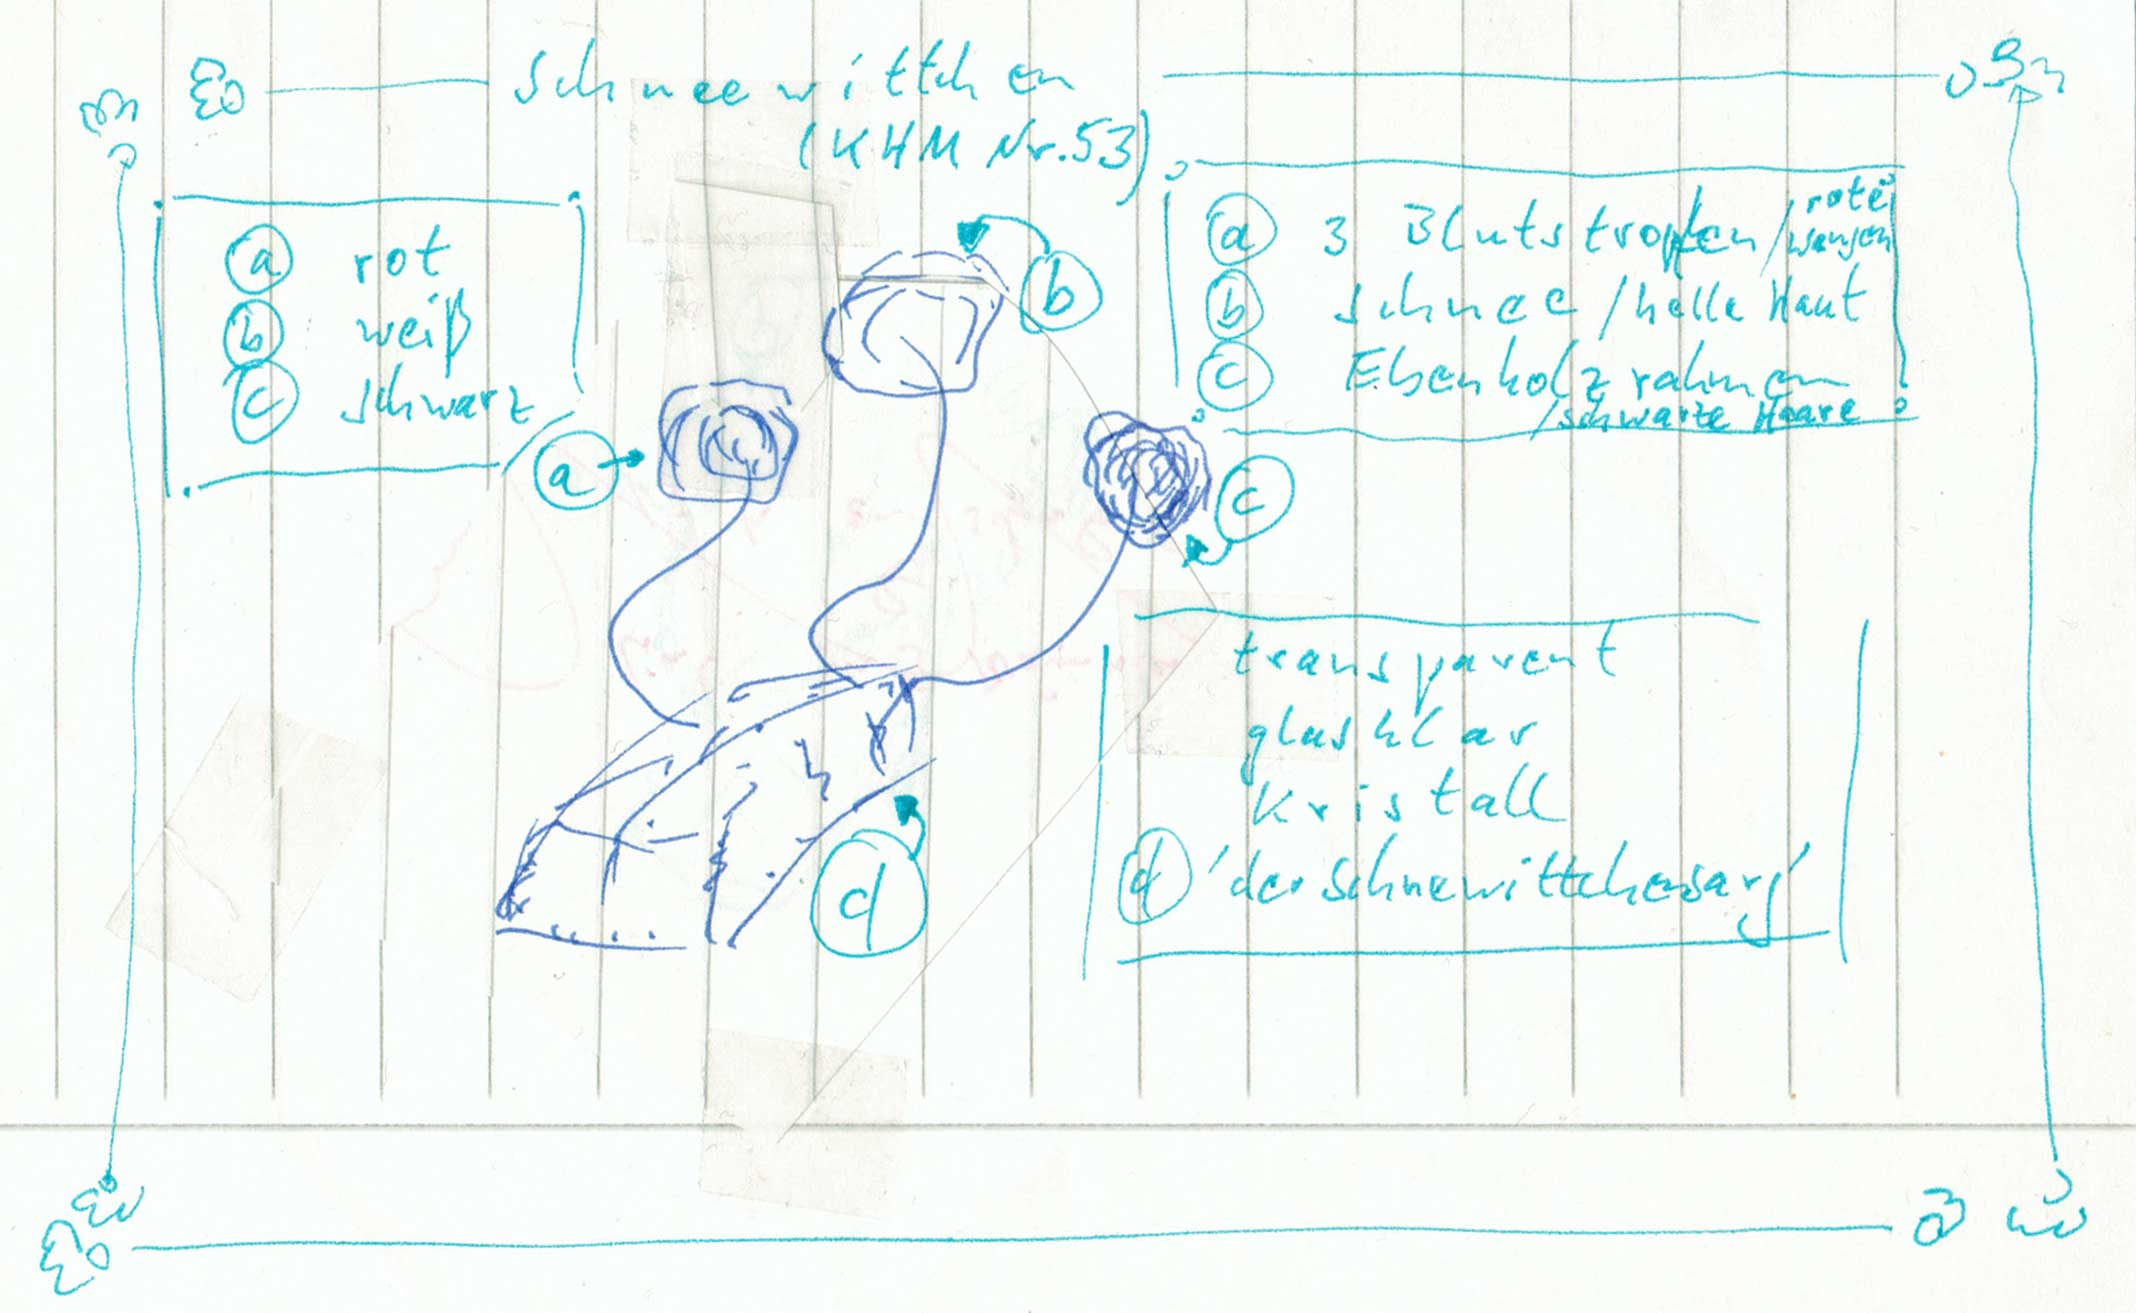 Schneewittchen
(KHM Nr. 53)
a rot
b weiß
c schwarz
a 3 Blutstropfen / rote Wangen
b Schnee / helle Haut
c Ebenholzrahmen
/ schwarze Haare
b
a
c
transparent
glasklar
Kristall
d 'der Schnewittchensarg'
d